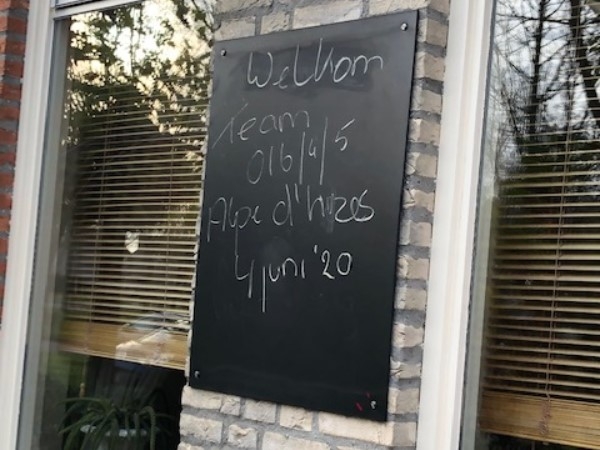 Welkom
Team
016/4/5
Alpe d'huzes
4 juni '20